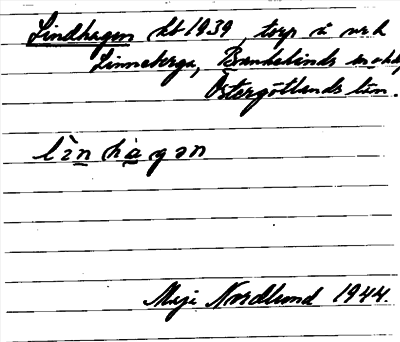 Lindhagen kt 1939, torp i
Linneberga, Bankekinds
Östergötlands län.
lìn hàgən
Nordlund 1944.